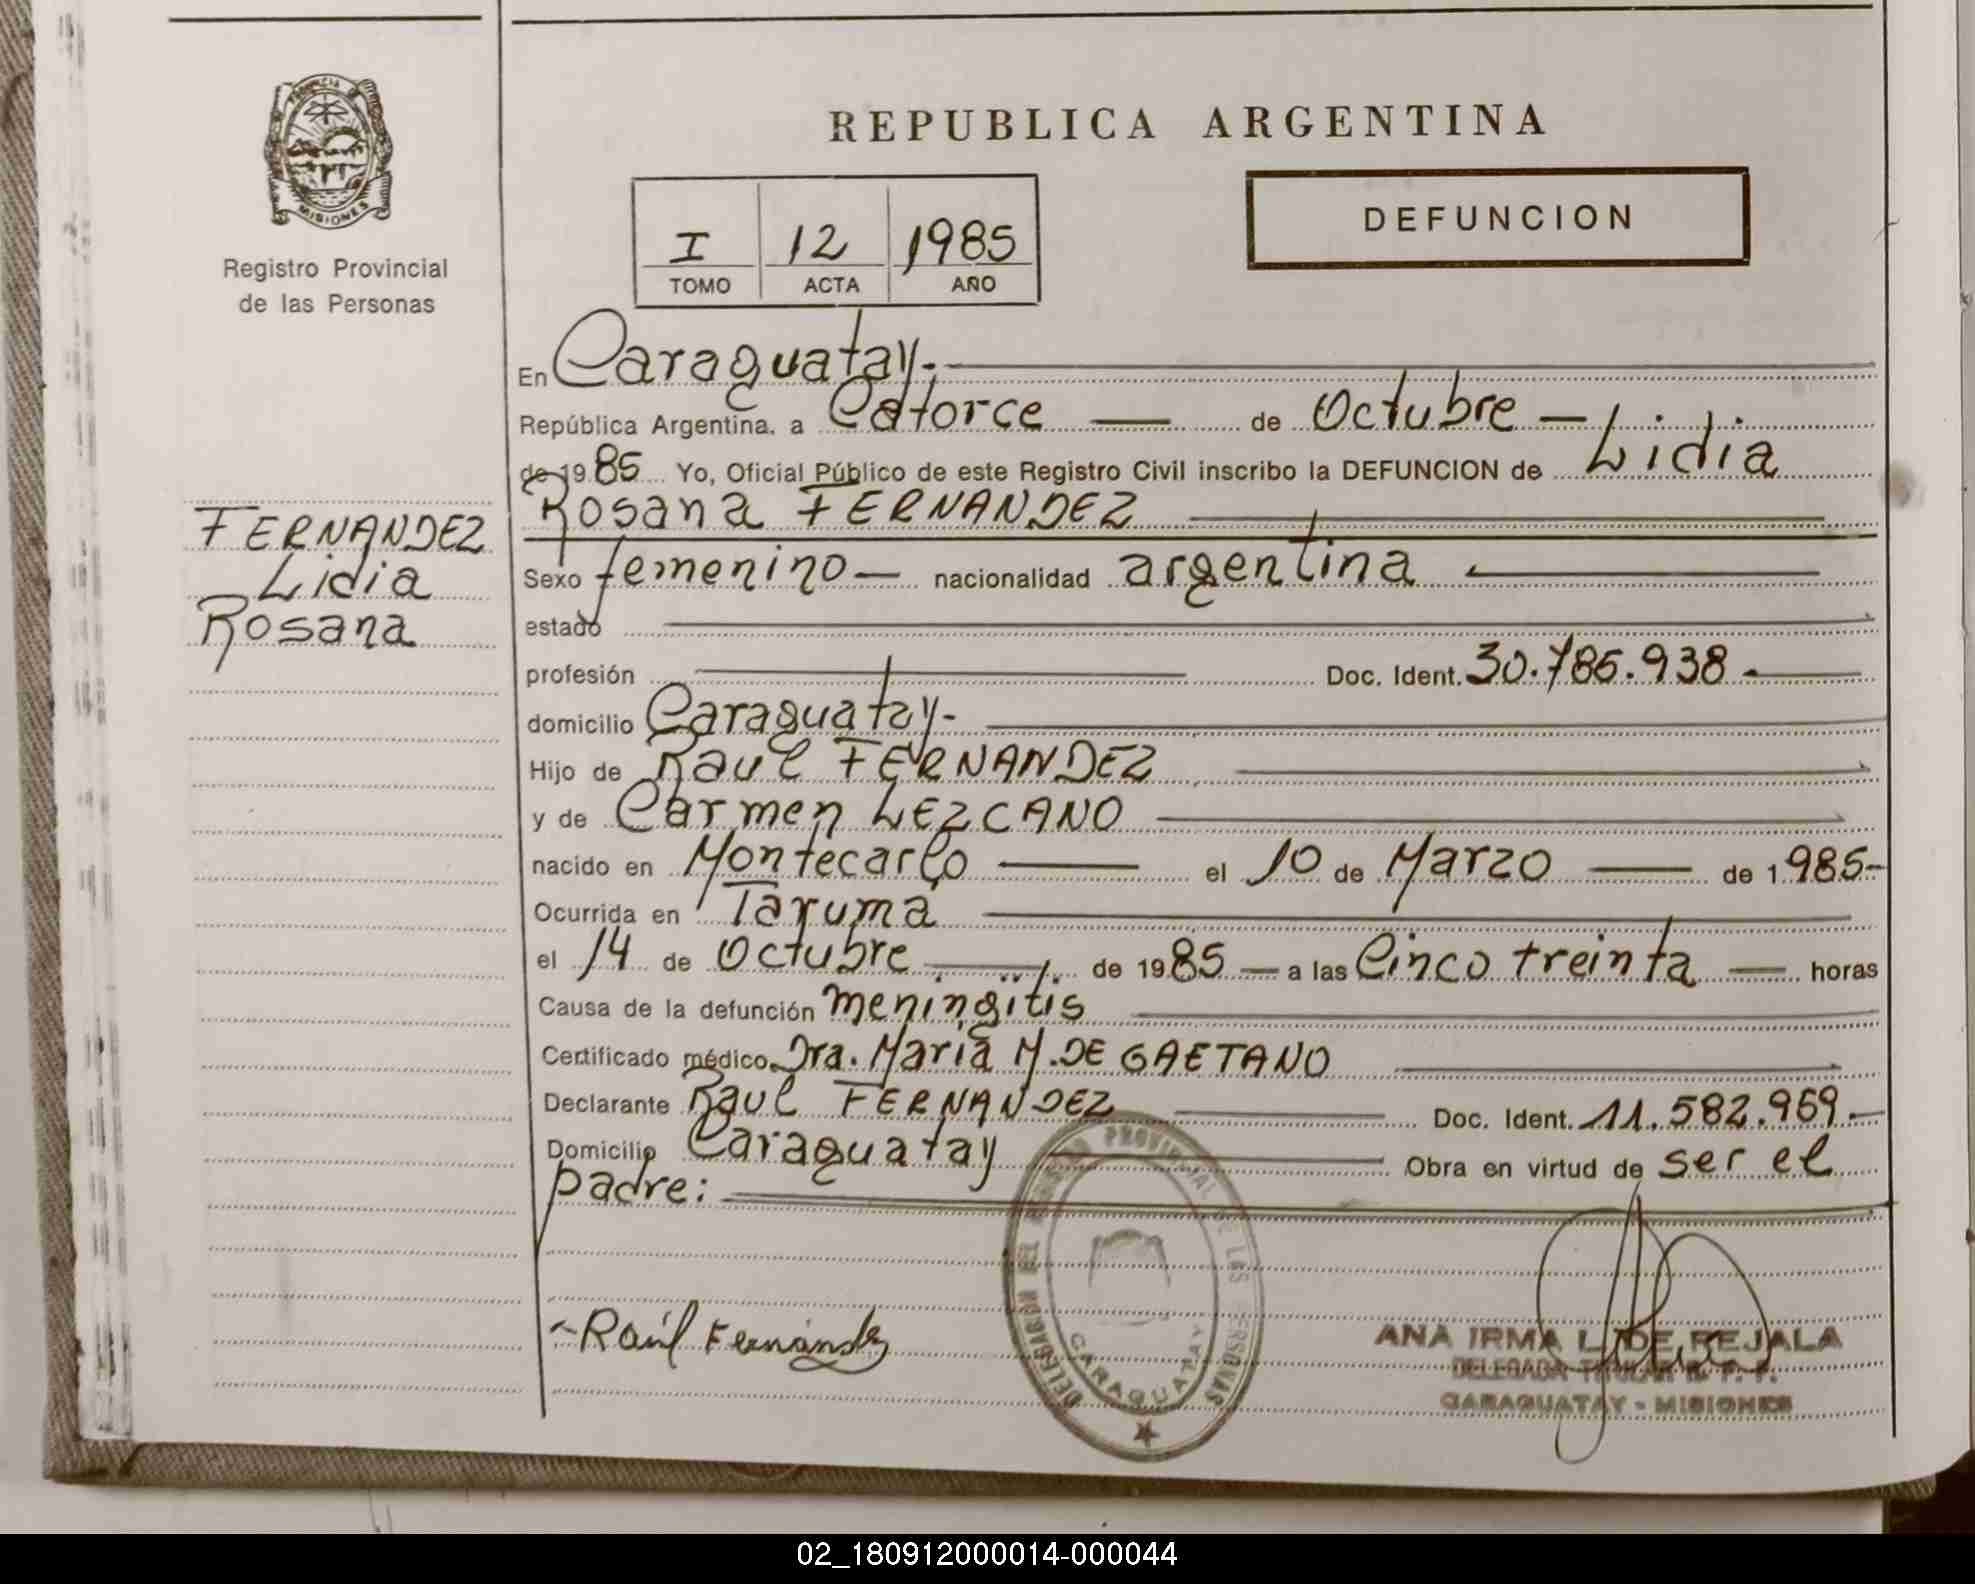 PROVINCIA DE
MISIONES
Registro Provincial
de las Personas
FERNANDEZ
Lidia
Rosana
REPUBLICA ARGENTINA
I 12 1985
TOMO ACTA AÑO
DEFUNCION
En Caraguatay.
República Argentina, a Catorce — de Octubre —
de 1985 Yo, Oficial Público de este Registro Civil inscribo la DEFUNCION de Lidia
Rosana FERNANDEZ
Sexo femenino — nacionalidad argentina
estado
profesión Doc. Ident. 30.786.938.-
domicilio Caraguatay-
Hijo de Raul FERNANDEZ
y de Carmen LEZCANO
nacido en Montecarlo — el 10 de Marzo — de 1985-
Ocurrida en Taruma
el 14 de Octubre — de 1985 — a las Cinco treinta — horas
Causa de la defunción meningitis
Certificado médico Dra. Maria M. DE GAETANO
Declarante Raul FERNANDEZ Doc. Ident. 11.582.969.-
Domicilio Caraguatay Obra en virtud de ser el
padre:
Raúl Fernández
DELEGACION DEL REGISTRO PROVINCIAL DE LAS PERSONAS
CARAGUATAY
ANA IRMA L. DE REJALA
DELEGADA TITULAR R. P. P.
CARAGUATAY - MISIONES
02_180912000014-000044